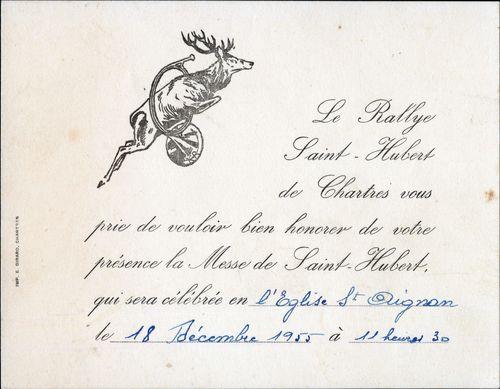 Le Rallye
Saint-Hubert
de Chartres vous
prie de vouloir bien honorer de votre
présence la Messe de Saint-Hubert,
qui sera célébrée en l'Eglise St Aignan
le 18 Décembre 1955 à 11 heures 30
IMP. E. GIRARD, CHARTRES